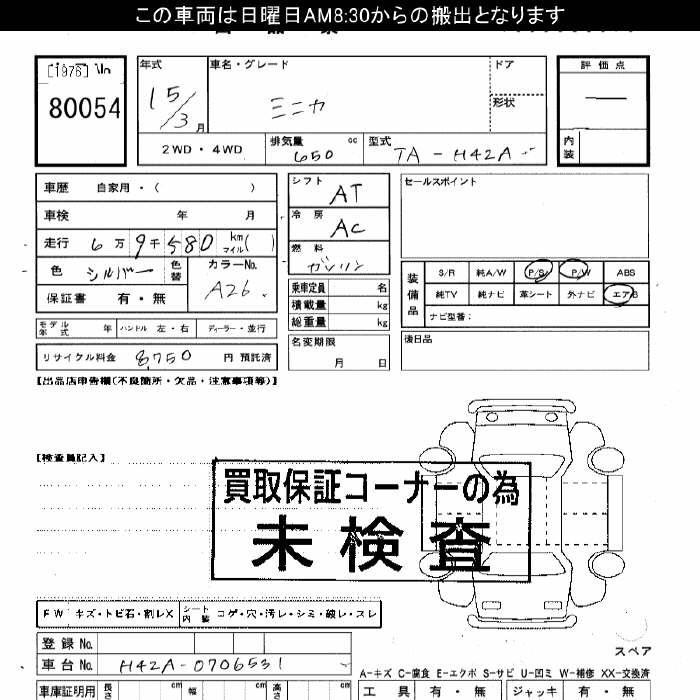 この車両は日曜日AM8:30からの搬出となります
[1976] \ln
80054
年式
15/3 月
車名・グレード
ミニカ
ドア
形状
評価点
内装
2WD・4WD
排気量 650 cc
型式 TA-H42A-
車歴 自家用・( )
車検 年 月
走行 6万9千580 km マイル( )
色 シルバー 色替
カラーNo. A26
保証書 有・無
モデル年式 年 ハンドル 左・右 ディーラー・並行
リサイクル料金 8,750 円 預託済
シフト AT
冷房 AC
燃料 ガソリン
乗車定員 名
積載量 kg
総重量 kg
名変期限
月 日
セールスポイント
装備品
S/R 純A/W P/S P/W ABS
純TV 純ナビ 革シート 外ナビ エアB
ナビ型番:
後日品
【出品店申告欄(不良箇所・欠品・注意事項等)】
【検査員記入】
買取保証コーナーの為
未検査
FW キズ・トビ石・割レX シート内装 コゲ・穴・汚レ・シミ・破レ・スレ
登録No.
車台No. H42A-0706531
スペア
A-キズ C-腐食 E-エクボ S-サビ U-凹ミ W-補修 XX-交換済
車庫証明用 長さ cm 幅 cm 高さ cm
工具 有・無 ジャッキ 有・無